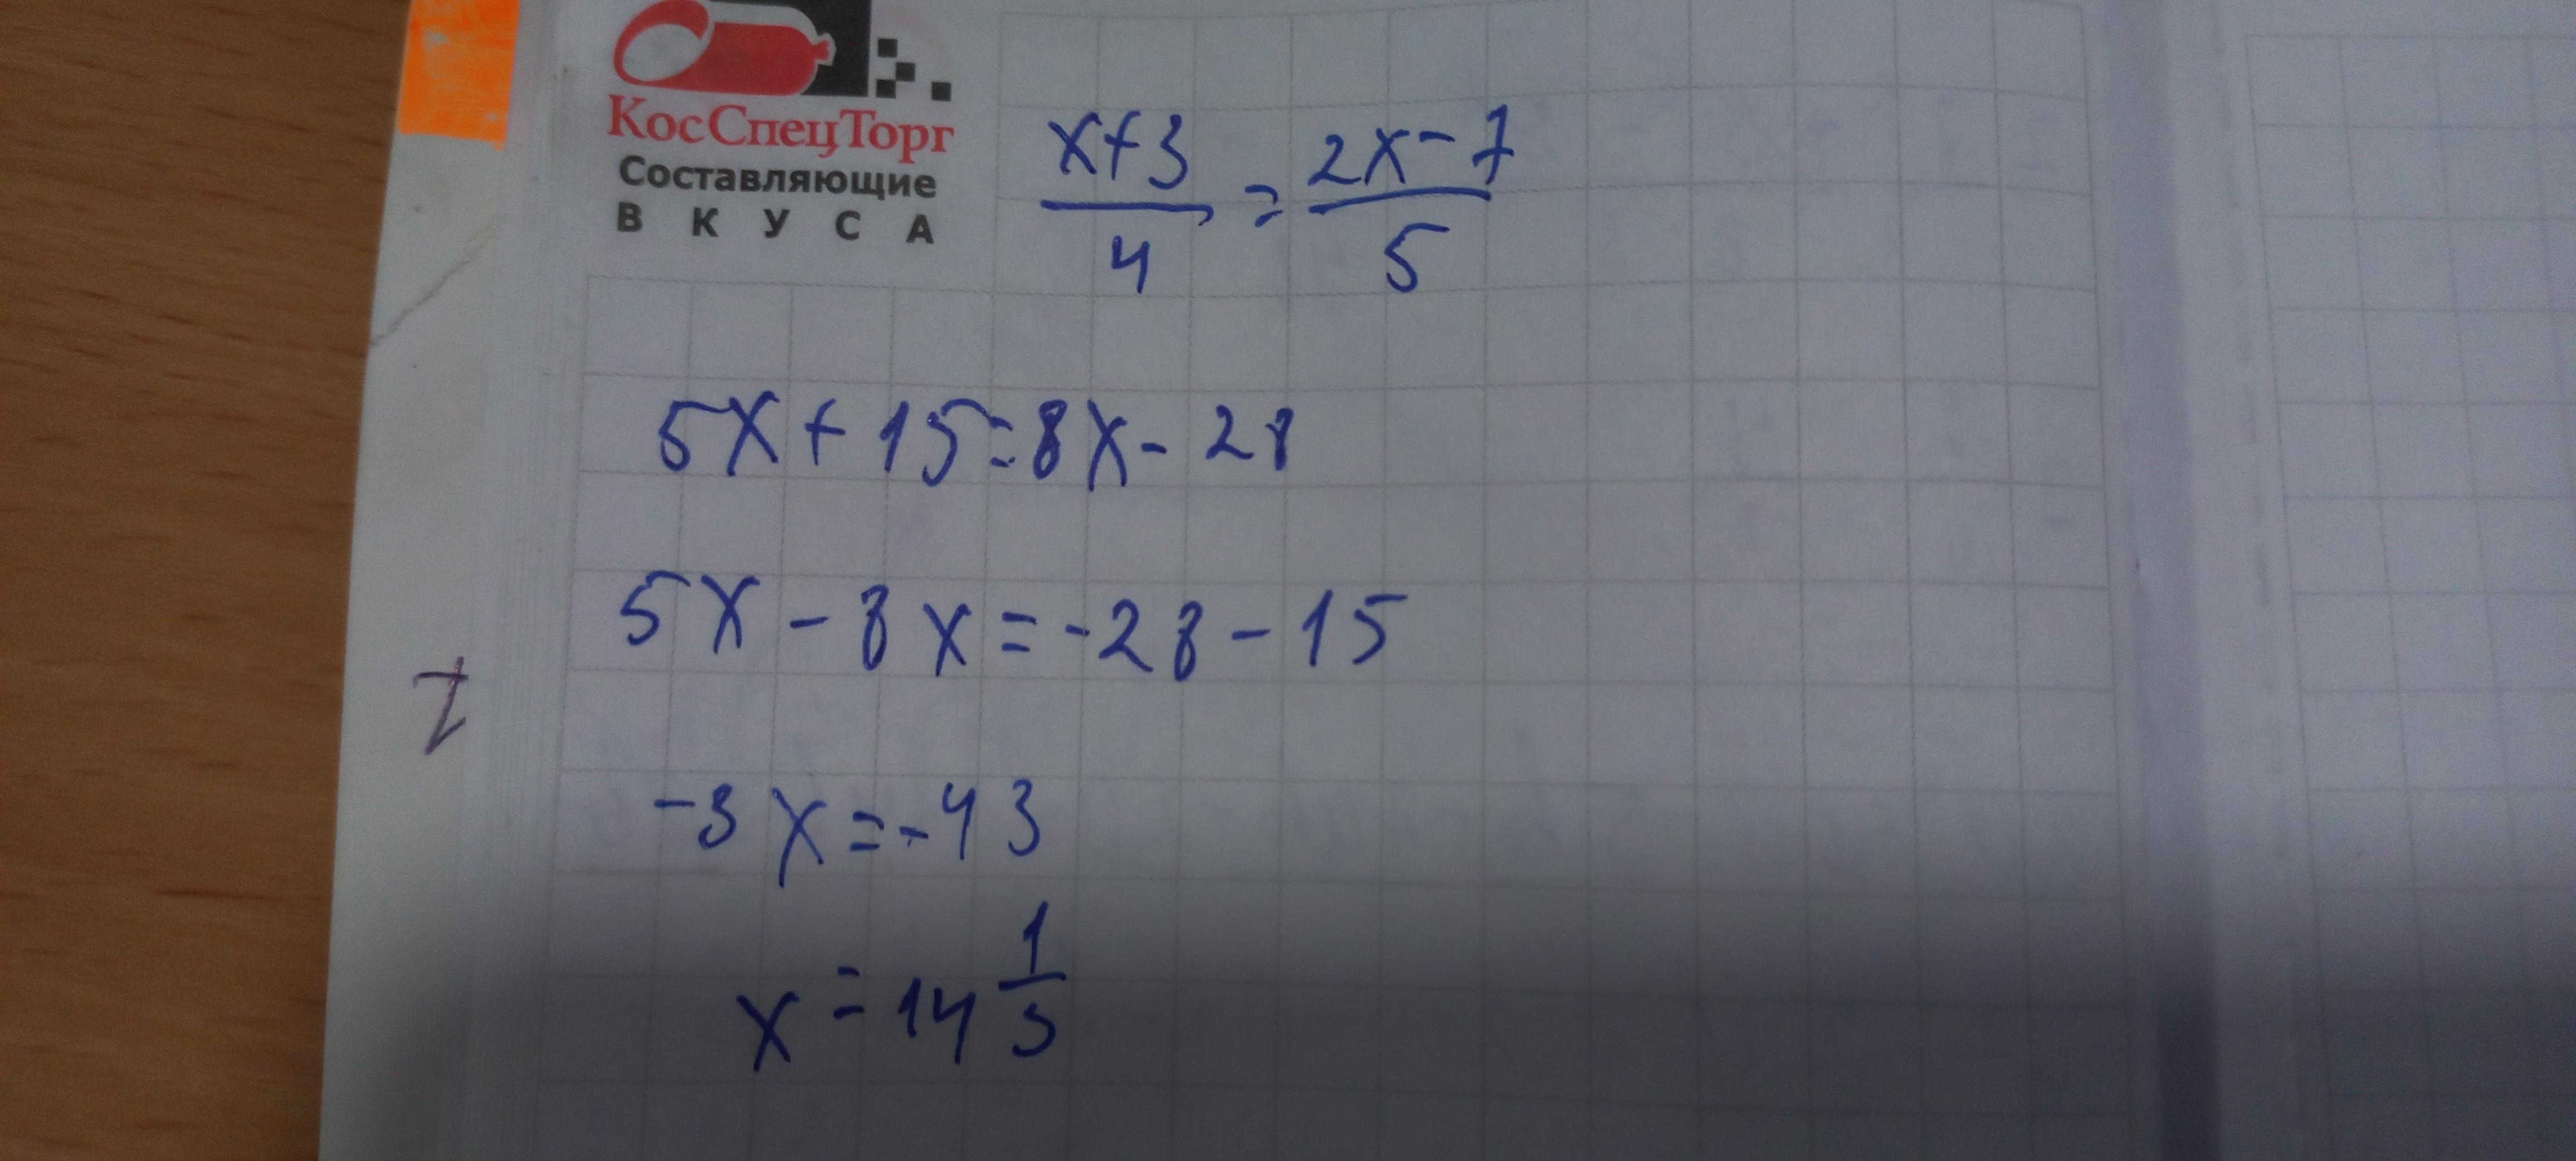 КосСпецТорг
Составляющие
ВКУСА
x+3/4 = 2x-7/5
5x+15=8x-28
5x-8x=-28-15
-3x=-43
x=14 1/3